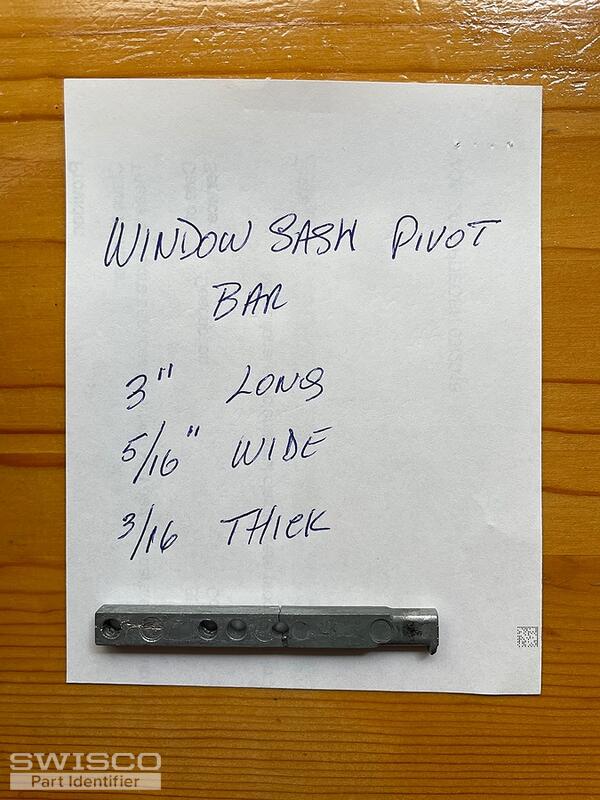 WINDOW SASH PIVOT
BAR
3" LONG
5/16" WIDE
3/16 THICK
SWISCO
Part Identifier